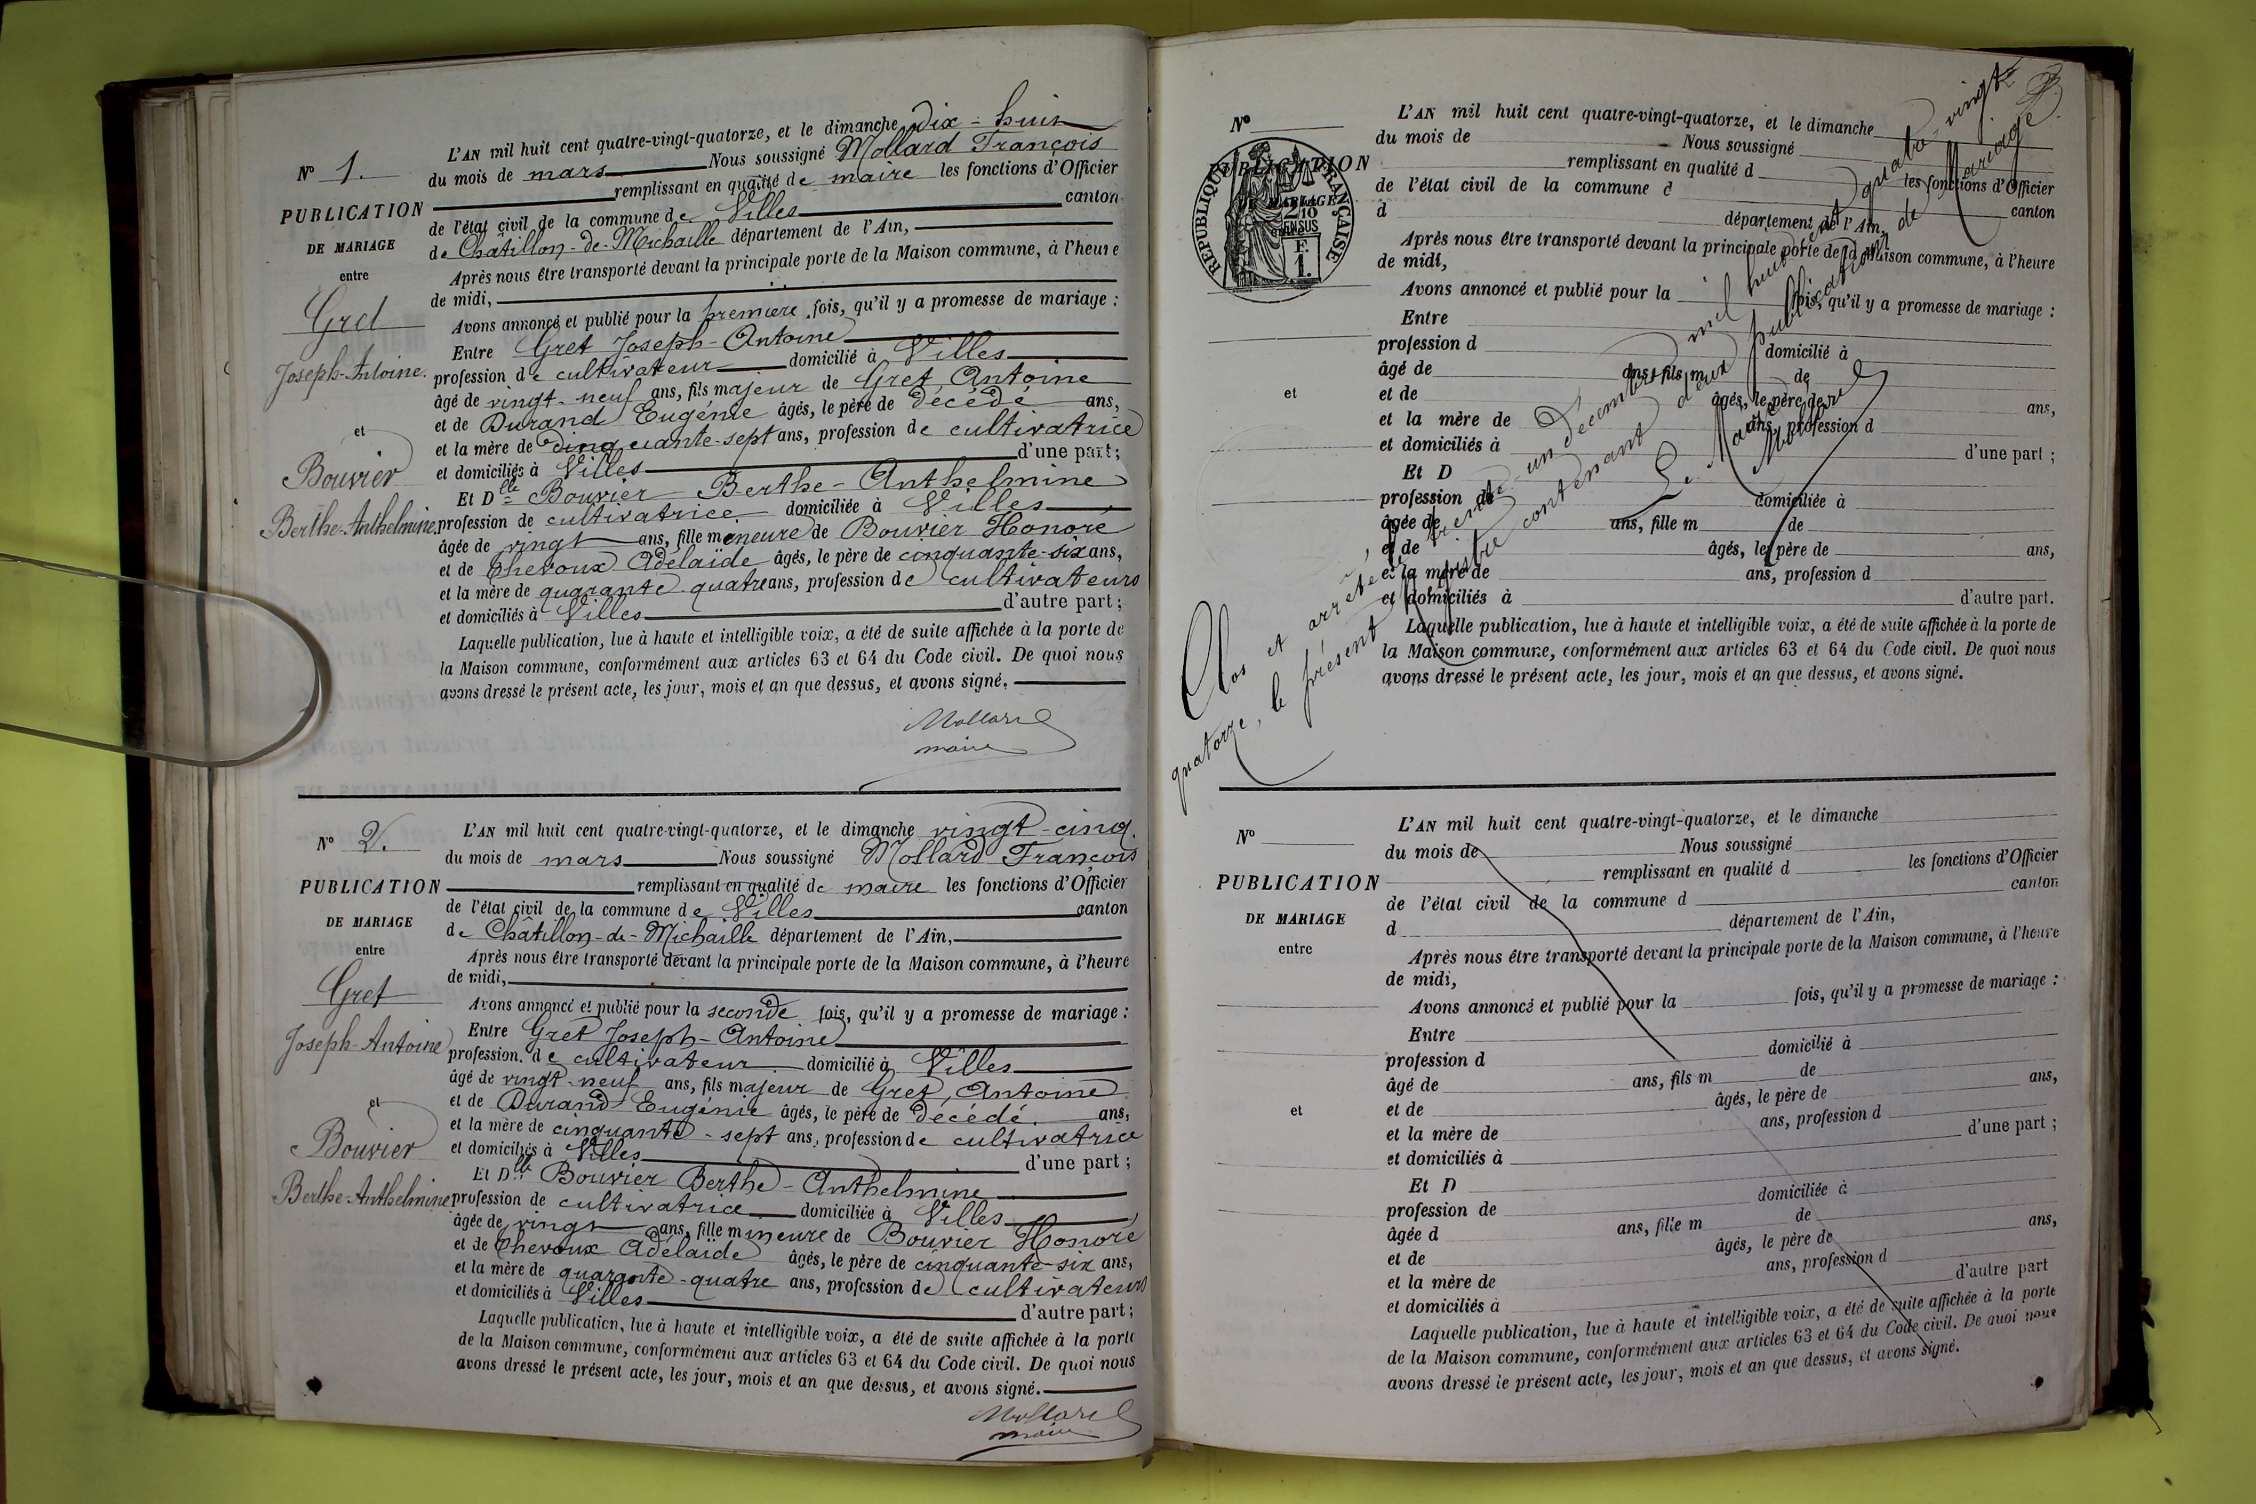 L'AN mil huit cent quatre-vingt-quatorze, et le dimanche dix-huit
N° 1. du mois de mars Nous soussigné Mollard François
remplissant en qualité de maire les fonctions d'Officier
PUBLICATION de l'état civil de la commune de Villes canton
DE MARIAGE de Châtillon-de-Michaille département de l'Ain,
entre Après nous être transporté devant la principale porte de la Maison commune, à l'heure
de midi,
Gret Avons annoncé et publié pour la première fois, qu'il y a promesse de mariage :
Entre Gret Joseph-Antoine
Joseph-Antoine. profession de cultivateur domicilié à Villes
âgé de vingt-neuf ans, fils majeur de Gret, Antoine
et de Durand Eugénie âgés, le père de décédé ans,
et et la mère de cinquante-sept ans, profession de cultivatrice
Bouvier et domiciliés à Villes d'une part ;
Et Dlle Bouvier Berthe-Anthelmine
Berthe-Anthelmine profession de cultivatrice domiciliée à Villes
âgée de vingt ans, fille mineure de Bouvier Honoré
et de Chevoux Adélaïde âgés, le père de cinquante-six ans,
et la mère de quarante-quatre ans, profession de cultivateurs
et domiciliés à Villes d'autre part ;
Laquelle publication, lue à haute et intelligible voix, a été de suite affichée à la porte de
la Maison commune, conformément aux articles 63 et 64 du Code civil. De quoi nous
avons dressé le présent acte, les jour, mois et an que dessus, et avons signé.
Mollard
maire
L'AN mil huit cent quatre-vingt-quatorze, et le dimanche vingt-cinq.
N° 2. du mois de mars Nous soussigné Mollard François
PUBLICATION remplissant en qualité de maire les fonctions d'Officier
de l'état civil de la commune de Villes canton
DE MARIAGE de Châtillon-de-Michaille département de l'Ain,
entre Après nous être transporté devant la principale porte de la Maison commune, à l'heure
de midi,
Gret Avons annoncé et publié pour la seconde fois, qu'il y a promesse de mariage :
Entre Gret Joseph-Antoine
Joseph-Antoine profession de cultivateur domicilié à Villes
âgé de vingt-neuf ans, fils majeur de Gret, Antoine
et de Durand Eugénie âgés, le père de décédé. ans,
et et la mère de cinquante-sept ans, profession de cultivatrice
Bouvier et domiciliés à Villes d'une part ;
Et Dlle Bouvier Berthe-Anthelmine
Berthe-Anthelmine profession de cultivatrice domiciliée à Villes
âgée de vingt ans, fille mineure de Bouvier Honoré
et de Chevoux Adélaïde âgés, le père de cinquante-six ans,
et la mère de quarante-quatre ans, profession de cultivateurs
et domiciliés à Villes d'autre part ;
Laquelle publication, lue à haute et intelligible voix, a été de suite affichée à la porte
de la Maison commune, conformément aux articles 63 et 64 du Code civil. De quoi nous
avons dressé le présent acte, les jour, mois et an que dessus, et avons signé.
Mollard
maire
N° L'AN mil huit cent quatre-vingt-quatorze, et le dimanche
du mois de Nous soussigné
PUBLICATION remplissant en qualité d les fonctions d'Officier
de l'état civil de la commune d canton
DE MARIAGE d département de l'Ain,
RÉPUBLIQUE FRANÇAISE
2/10 EN SUS
F. 1.
Après nous être transporté devant la principale porte de la Maison commune, à l'heure
de midi,
Avons annoncé et publié pour la fois, qu'il y a promesse de mariage :
Entre
profession d domicilié à
âgé de ans, fils m de
et et de âgés, le père de ans,
et la mère de ans, profession d
et domiciliés à d'une part ;
Et D
profession de domiciliée à
âgée de ans, fille m de
et de âgés, le père de ans,
et la mère de ans, profession d
et domiciliés à d'autre part.
Laquelle publication, lue à haute et intelligible voix, a été de suite affichée à la porte de
la Maison commune, conformément aux articles 63 et 64 du Code civil. De quoi nous
avons dressé le présent acte, les jour, mois et an que dessus, et avons signé.
Clos et arrêté le trente-un décembre mil huit cent quatre-vingt-
quatorze, le présent registre contenant deux publications de Mariage.
Le Maire
Mollard
N° L'AN mil huit cent quatre-vingt-quatorze, et le dimanche
du mois de Nous soussigné
PUBLICATION remplissant en qualité d les fonctions d'Officier
de l'état civil de la commune d canton
DE MARIAGE d département de l'Ain,
entre Après nous être transporté devant la principale porte de la Maison commune, à l'heure
de midi,
Avons annoncé et publié pour la fois, qu'il y a promesse de mariage :
Entre
profession d domicilié à
âgé de ans, fils m de
et et de âgés, le père de ans,
et la mère de ans, profession d
et domiciliés à d'une part ;
Et D
profession de domiciliée à
âgée d ans, fille m de
et de âgés, le père de ans,
et la mère de ans, profession d
et domiciliés à d'autre part
Laquelle publication, lue à haute et intelligible voix, a été de suite affichée à la porte
de la Maison commune, conformément aux articles 63 et 64 du Code civil. De quoi nous
avons dressé le présent acte, les jour, mois et an que dessus, et avons signé.